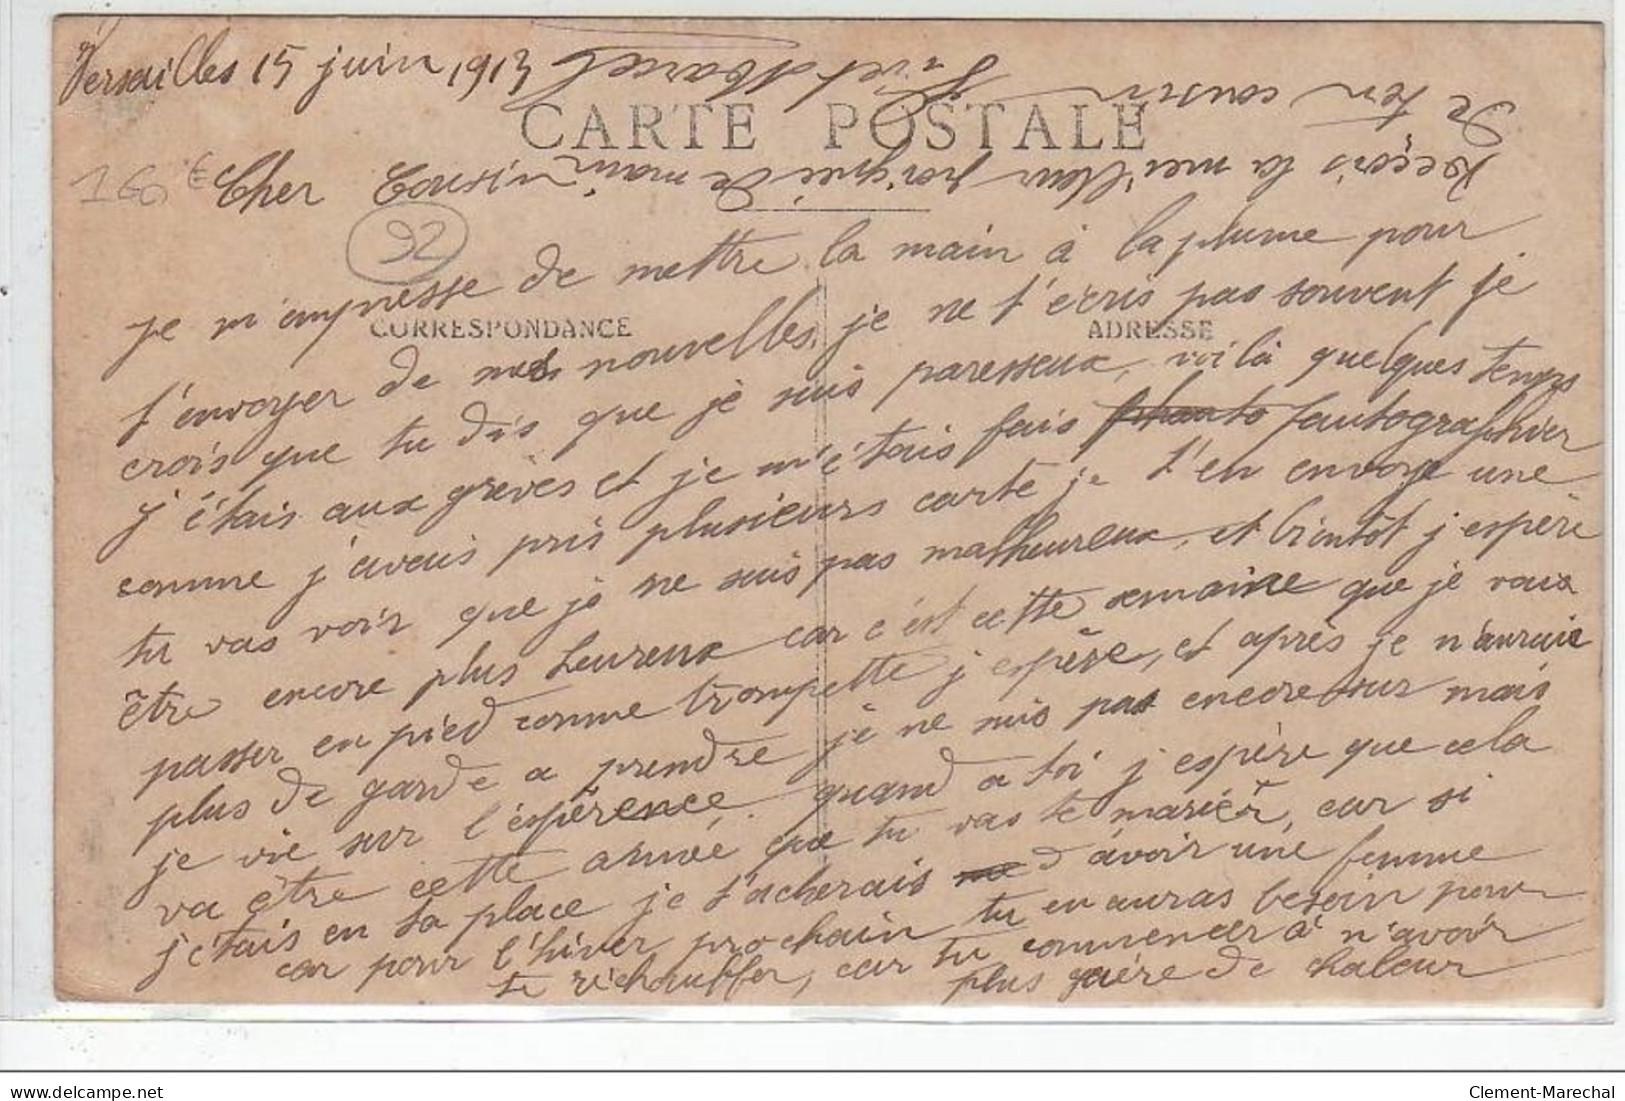 Versailles 15 juin 1913
CARTE POSTALE
160 €
Cher Cousin
92
je m'empresse de mettre la main à la plume pour
CORRESPONDANCE
ADRESSE
t'envoyer de mes nouvelles, je ne t'écris pas souvent je
crois que tu dis que je suis paresseux, voilà quelques temps
j'étais aux grèves et je m'étais fais photo fautographier
comme j'avais pris plusieurs carte je t'en envoye une
tu vas voir que je ne suis pas malheureux, et bientôt j'espère
être encore plus heureux car c'est cette semaine que je vais
passer en pied comme trompette j'espère, et après je n'aurai
plus de garde a prendre je ne suis pas encore sur mais
je vie sur l'espérence. quand a toi j'espère que cela
va être cette année que tu vas te mariér, car si
j'étais en ta place je t'acherais d'avoir une femme
car pour l'hiver prochain tu en auras besoin pour
te réchauffer, car tu commencer à n'avoir
plus guère de chaleur
Reçois la meilleur poignée de main
De ton cousin
Marcel
Clement-Marechal
delcampe.net